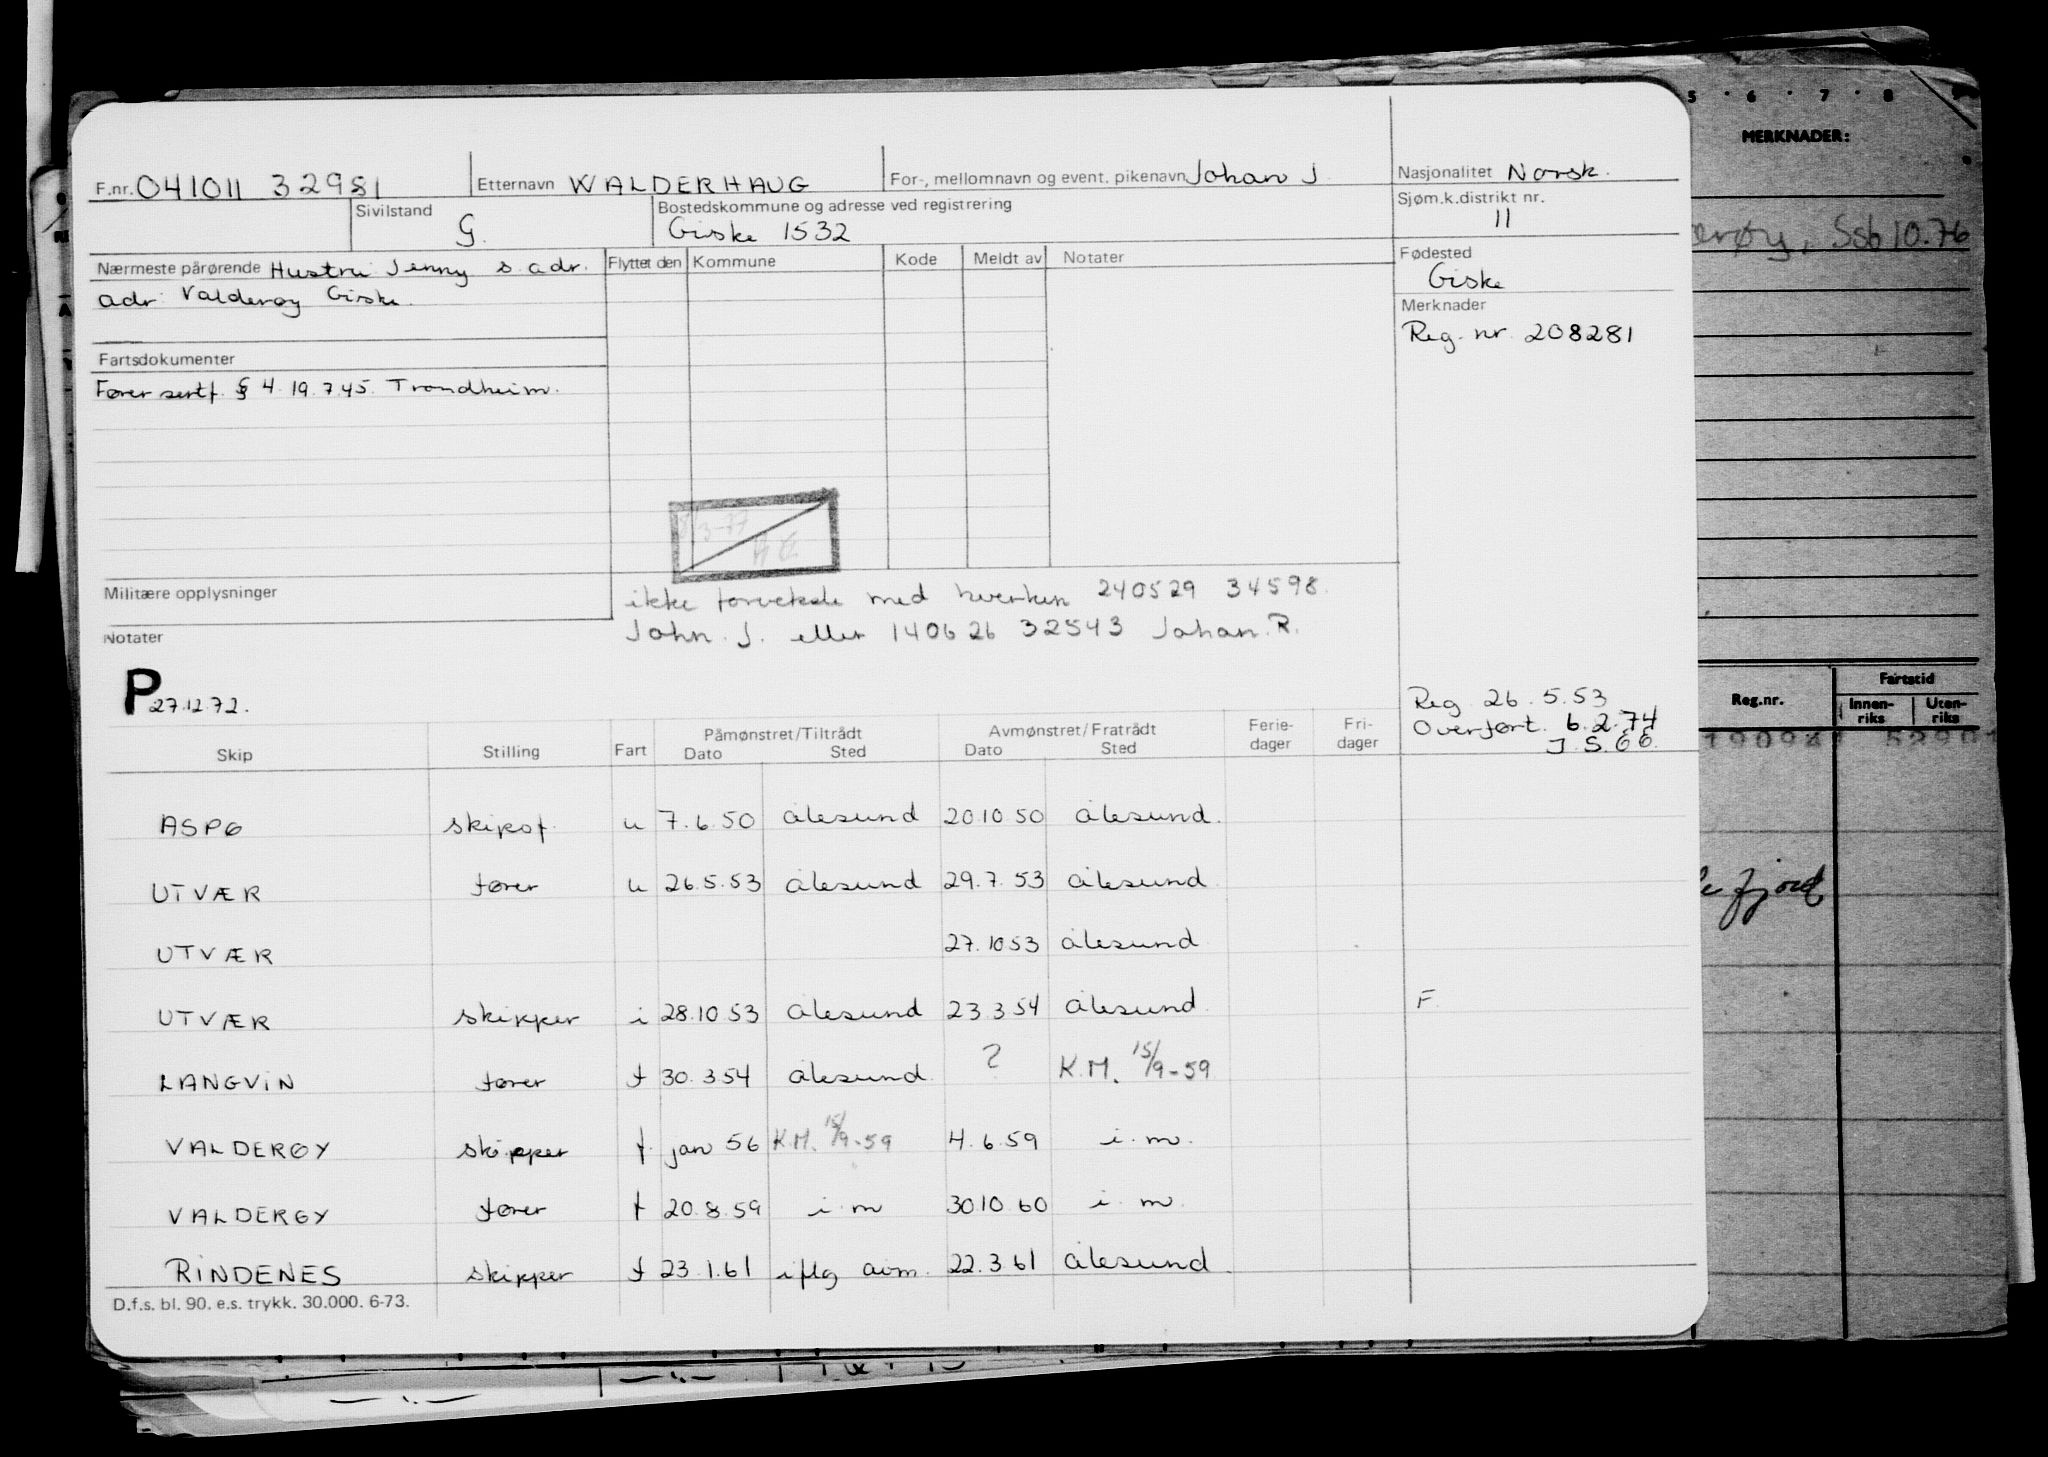 F.nr. 041011 32981 Etternavn WALDERHAUG For-, mellomnavn og event. pikenavn Johan J Nasjonalitet Norsk.
Sivilstand G. Bostedskommune og adresse ved registrering Giske 1532 Sjøm.k.distrikt nr. 11
Nærmeste pårørende Hustru Jenny s. adr. Flyttet den Kommune Kode Meldt av Notater Fødested Giske
adr Valderøy Giske.
Merknader
Reg. nr. 208281
Fartsdokumenter
Fører sertf. § 4. 19.7.45. Trondheim.
Militære opplysninger
ikke forveksle med hverken 240529 34598
Notater
John. J. eller 140626 32543 Johan. R.
P 27.12.72.
Reg 26.5.53
Overført. 6.2.74
J.S.66.
Skip Stilling Fart Påmønstret/Tiltrådt Dato Sted Avmønstret/Fratrådt Dato Sted Ferie-dager Fri-dager
ASPØ skipof. u 7.6.50 Ålesund 20.10 50 Ålesund.
UTVÆR fører u 26.5.53 Ålesund 29.7.53 Ålesund
UTVÆR 27.10 53 Ålesund
UTVÆR skipper i 28.10 53 Ålesund 23.3 54 Ålesund F.
LANGVIN fører f 30.3 54 Ålesund ? K.M. 15/9-59
VALDERØY skipper f. jan 56 K.M. 15/9-59 4.6.59 i.m.
VALDERØY fører f 20.8.59 i.m 30.10 60 i.m.
RINDENES skipper f 23.1.61 iflg avm. 22.3 61 Ålesund
D.f.s. bl. 90. e.s. trykk. 30.000. 6-73.
5 . 6 . 7 . 8
MERKNADER:
Ssb 10.76
Reg.nr. Fartstid
Innen-riks Uten-riks
fjord